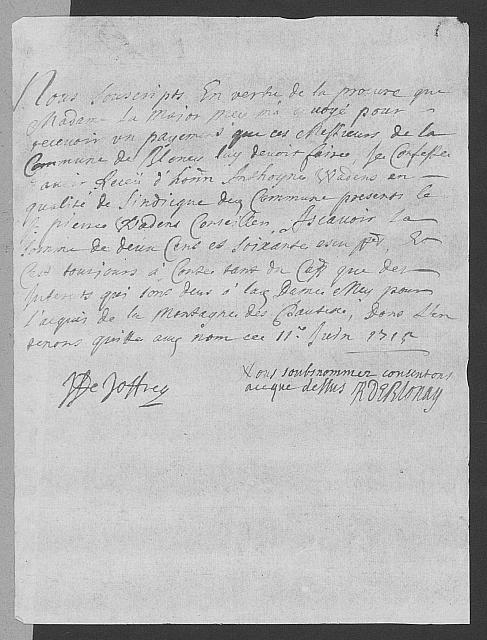 Nous Souscripts En vertu de la procure que
Madame La Major Mey m'a envoyé pour
recevoir un payement que ces Messieurs de la
Commune de Bloney luy devoit faires, Je Confesse
avoir Receü d'honn Anthoyne Wadens en
qualité de Sindicque de Commune presents le
Sr pierre Wadens Conseiller, Ascavoir La
Somme de deux Cens et Soixante escu, Et
C'est toujours a Conte tant du Capl que des
Interets qui sont deus à Dame Mey pour
L'aquis de la Montagne des Dont L'en
tenons quitte aux nom ce 11e Juin 1715
De Joffrey
Nous soubsnommer consentons
au que dessus RDEBlonay